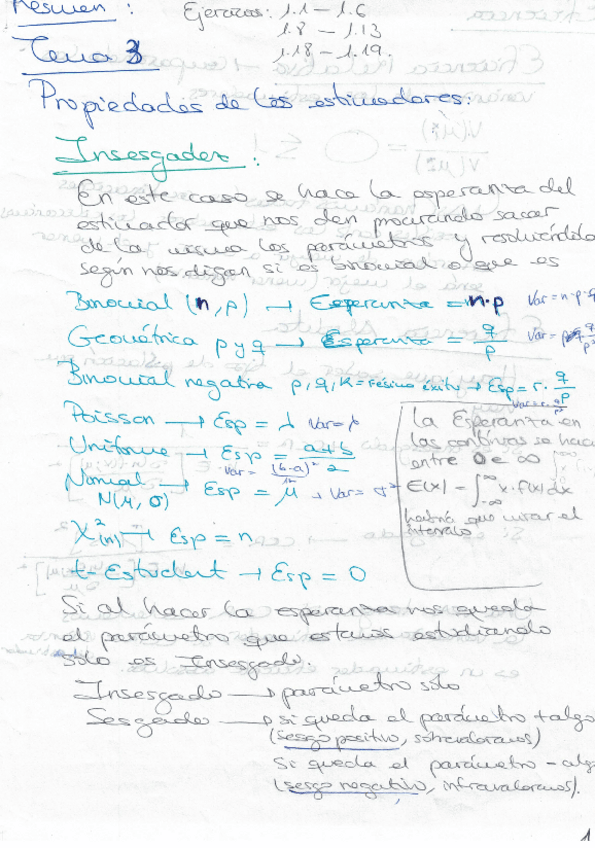 Resumen : Ejercicios: 1.1 – 1.6
1.8 – 1.13
1.18 – 1.19.
Tema 3
Propiedades de los estimadores:
Insesgadez :
En este caso se hace la esperanza del
estimador que nos den procurando sacar
de la misma los parámetros y resolviéndolo
según nos digan si es binomial o que es
Binomial (n, p) → Esperanza = n·p Var = n·p·q
Geométrica p y q → Esperanza = q/p Var = q/p²
Binomial negativa p, q, k = résimo éxito → Esp = r · q/p
Poisson → Esp = λ Var = λ
Uniforme → Esp = a+b/2
Var = (b-a)²/12
Normal → Esp = μ , Var = σ²
N(μ, σ)
χ²(n) → Esp = n
t-Estudent → Esp = 0
La Esperanza en
las continuas se hace
entre 0 e ∞
E(x) = ∫ x · f(x) dx
habrá que mirar el
intervalo
Si al hacer la esperanza nos queda
el parámetro que estamos estudiando
sólo es Insesgado.
Insesgado → parámetro sólo
Sesgado → si queda el parámetro + algo
(sesgo positivo, sobrevaloramos)
Si queda el parámetro – algo
(sesgo negativo, infravaloramos).
1